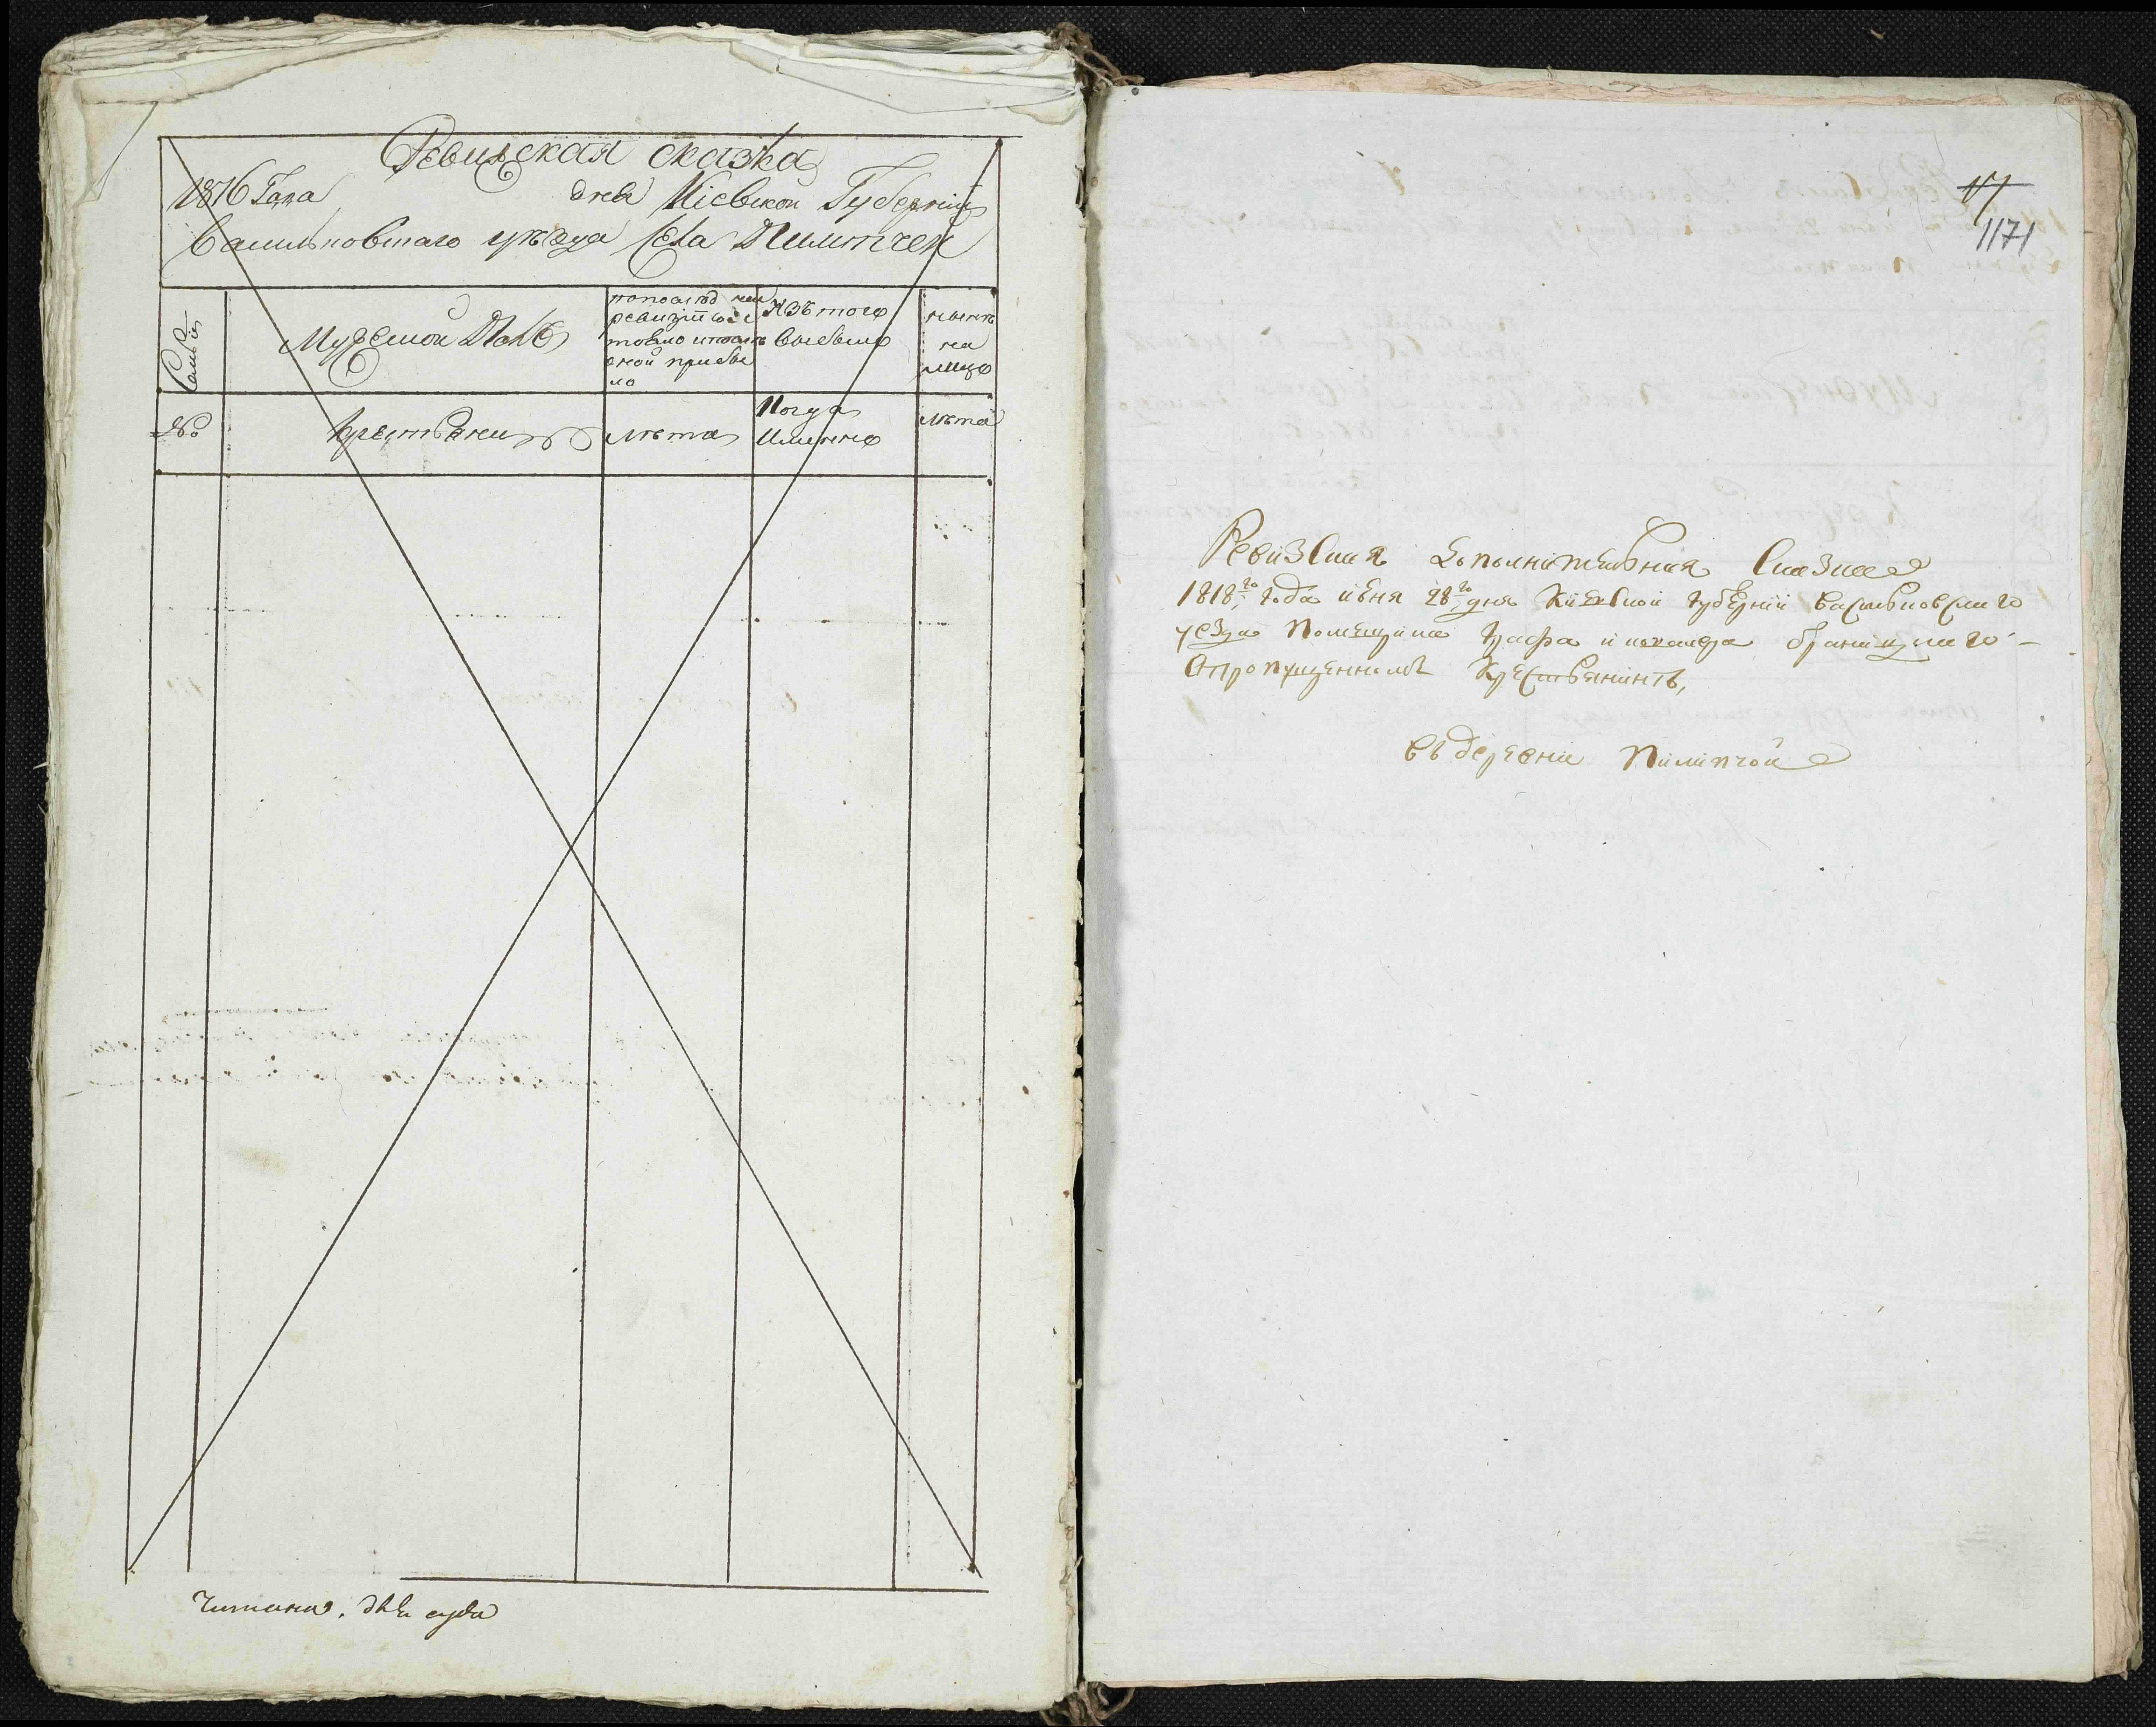 Ревижская сказка
1816 Года дня Кіевской Губерніи
Васильковшаго уѣзда села Пилипчек
Семьи
Мужеской Полъ
попослѣд ней
ревизіи сос
тояло и посл
ѣной прибы
ло
Изъ того
выбыло
нынѣ
на
лицо
№о
Крестьяни
лѣта
Когда
Именно
лѣта
Читано.
17
1171
Ревизская дополнительная Сказка
1818го года июня 28го дня Киевской губернии Васильковскаго
уезда Помещика Графа и кавалера браницкаго –
Опропущенномъ Крестьянинѣ,
въ деревни Пилипчой